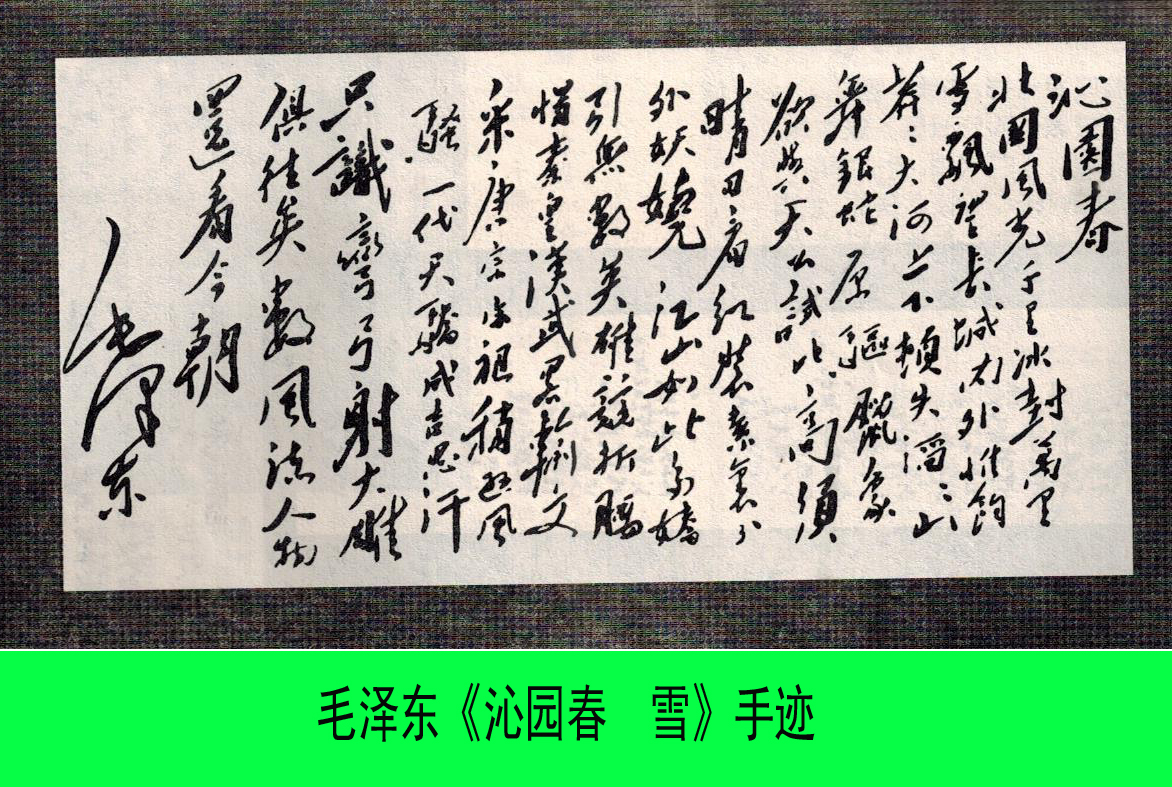 沁園春
北國風光千里冰封萬里
雪飄望長城內外惟餘
莽々大河上下頓失滔々山
舞銀蛇原驅臘象
欲與天公試比高須
晴日看紅裝素裹分
外妖嬈江山如此多嬌
引無數英雄競折腰
惜秦皇漢武略輸文
采唐宗宋祖稍遜風
騷一代天驕成吉思汗
只識彎弓射大雕
俱往矣數風流人物
還看今朝
毛澤東
毛泽东《沁园春　雪》手迹